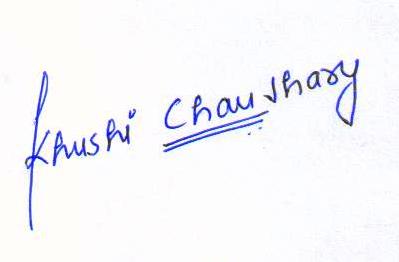 Khushi Chaudhary